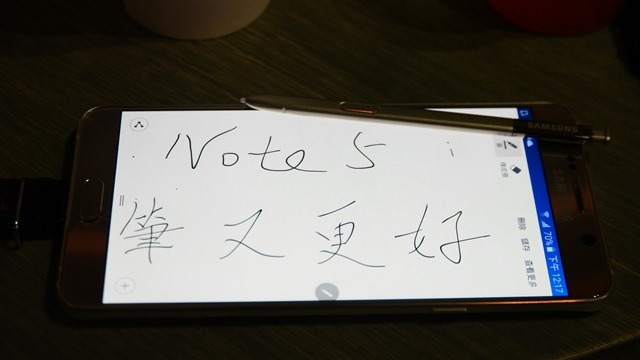 Note 5
筆又更好
SAMSUNG
刪除 儲存 查看更多
70% 下午 12:17